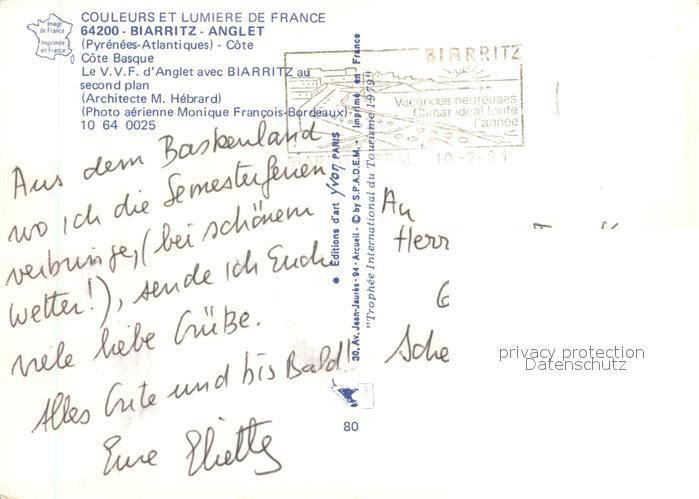 Image
de France
Imprimée
en France
COULEURS ET LUMIERE DE FRANCE
64200 - BIARRITZ - ANGLET
(Pyrénées-Atlantiques) - Côte
Côte Basque
Le V.V.F. d'Anglet avec BIARRITZ au
second plan
(Architecte M. Hébrard)
(Photo aérienne Monique François-Bordeaux)
10 64 0025
BIARRITZ
Vacances heureuses
Climat idéal toute
l'année
BIARRITZ PPAL 10-2-81
Aus dem Baskenland
wo ich die Semesterferien
verbringe, (bei schönem
Wetter!), sende ich Euch
viele liebe Grüße.
Alles Gute und bis Bald!
Eure
Editions d'art yvon PARIS
30, Av. Jean-Jaurès - 94 - Arcueil - © by S.P.A.D.E.M. - Imprimé en France
"Trophée International du Tourisme 1979"
80
An
Herr
Sche
privacy protection
Datenschutz